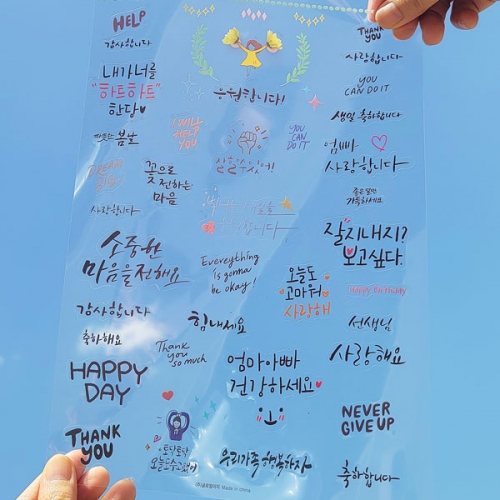 HELP
감사합니다
내가 너를
"하트하트"
한다♥
봄날
I WILL
HELP
YOU
꽃으로
전하는
마음
사랑합니다
소중한
마음을 전해요
감사합니다
축하해요
HAPPY
DAY
THANK
YOU
응원합니다!
YOU
CAN
DO IT
잘 할 수 있어!
Everything
is gonna
be okay!
오늘도
고마워
사랑해
힘내세요
Thank
you
so much
엄마 아빠
건강하세요
토닥토닥
오늘도 수고했어
우리가족 행복하자
Made in China
THANK
YOU
사랑합니다
YOU
CAN DO IT
생일 축하합니다
엄빠
사랑합니다
좋은 일만
가득하세요
잘 지내지?
보고싶다.
Happy Birthday
선생님
사랑해요
NEVER
GIVE UP
축하합니다